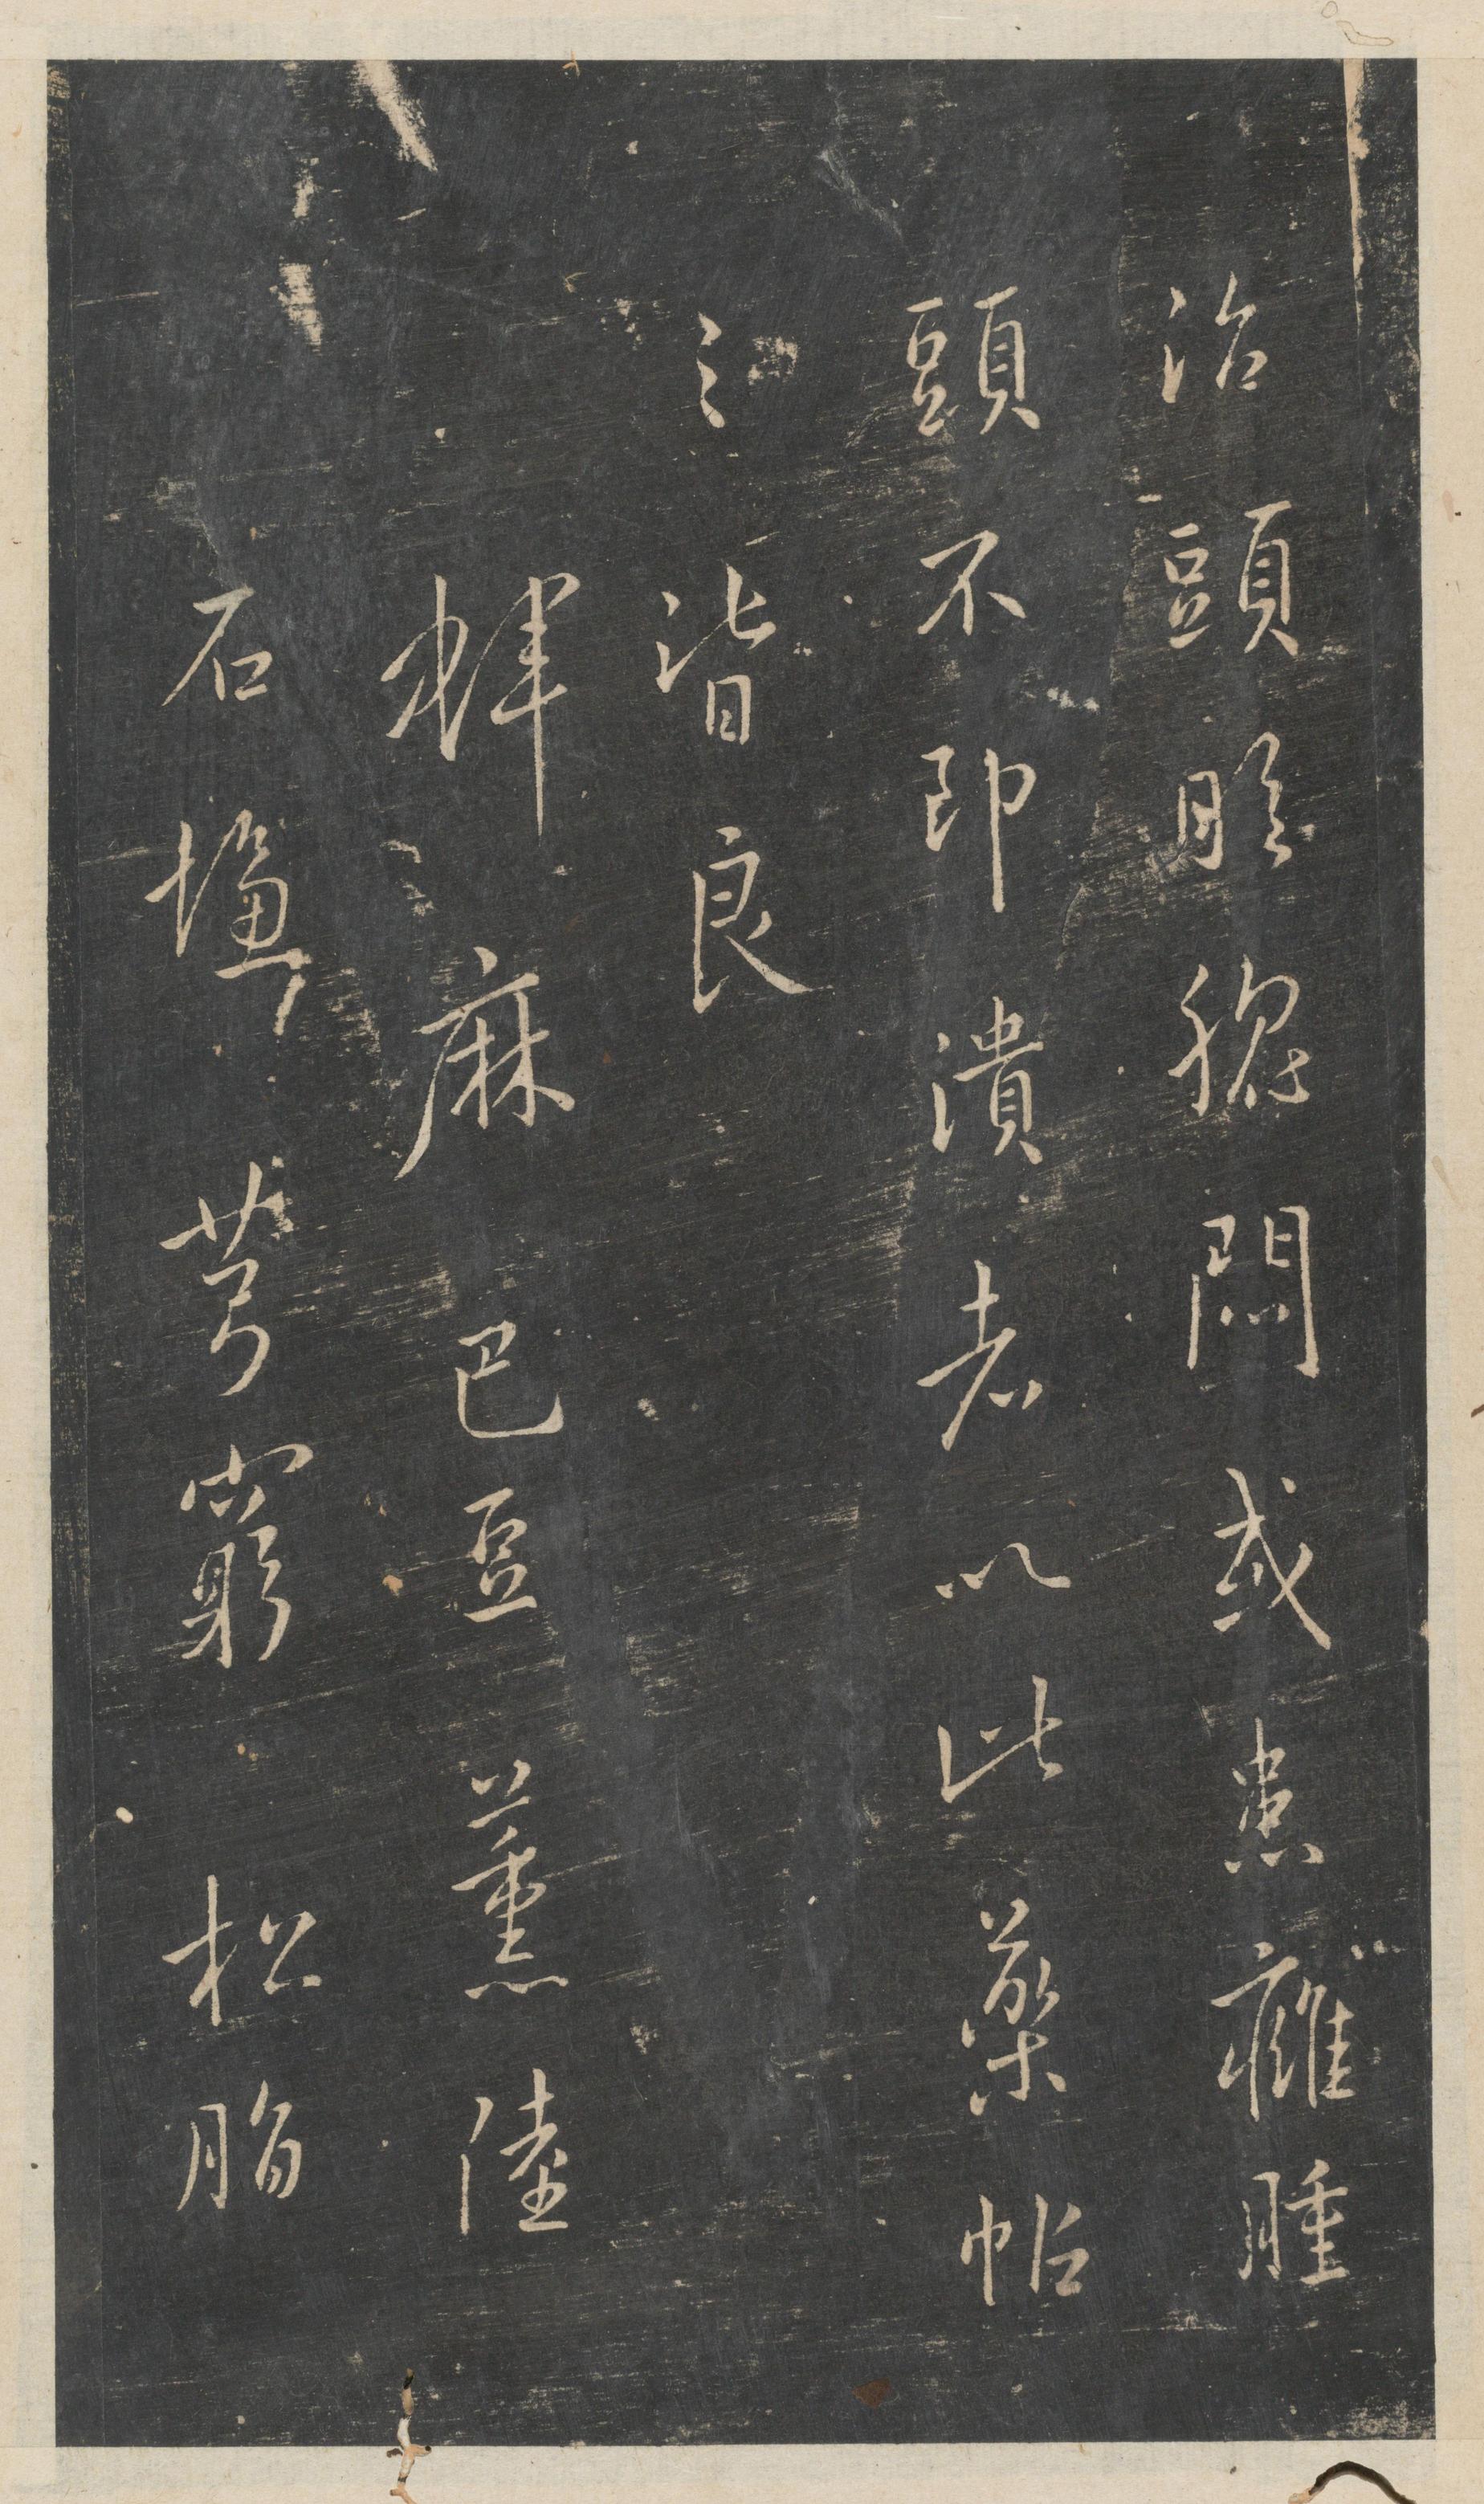 治頭眩腦悶或患癰腫
頭不即潰者以此藥帖
之皆良
蜱麻 巴豆 薰陸
石塩 芎窮 松脂